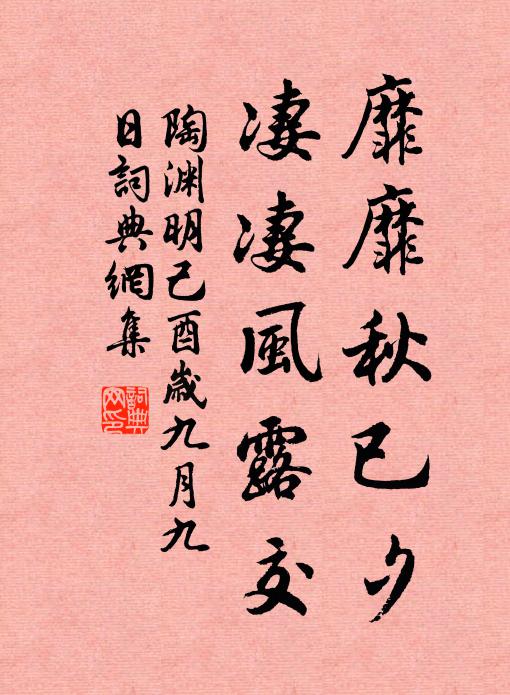 靡靡秋已夕
凄凄風露交
陶淵明己酉歲九月九
日詞典網集
詞典
网印